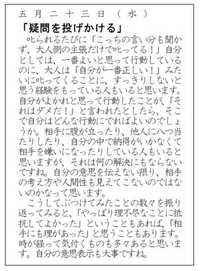 五月二十三日（水）
「疑問を投げかける」
　叱られるたびに「こっちの言い分も聞か
ず、大人側の主張だけで叱ってる！」自分
としては、一番よいと思って行動している
のに、大人は「自分が一番正しい！」みた
いに叱ってくることに、すっきりしないと
思う経験をもっている人もいると思います。
自分がよかれと思って行動したことが、「そ
れはダメだ！」と言われたとしたら、そこ
で自分はどんな行動にでればよいのでしょ
うか。相手に腹が立ったり、他人に八つ当
たりしたり、自分の中で納得がいかなくて
相手を嫌いになったりしている人もいると
思いますが、それは何の解決にもならない
ですね。自分の意思を伝えない限り、相手
の考え方や人間性も見えてこないのではな
いのかなって思います。
　こうしてぶつけてみたことの数々を振り
返ってみると、「やっぱり理不尽なことに抵
抗してよかった」ということもあれば、「相
手にも理があった」と思うこともあります。
時が経って気付くものも多々あると思いま
す。自分の意思表示も大事ですね。